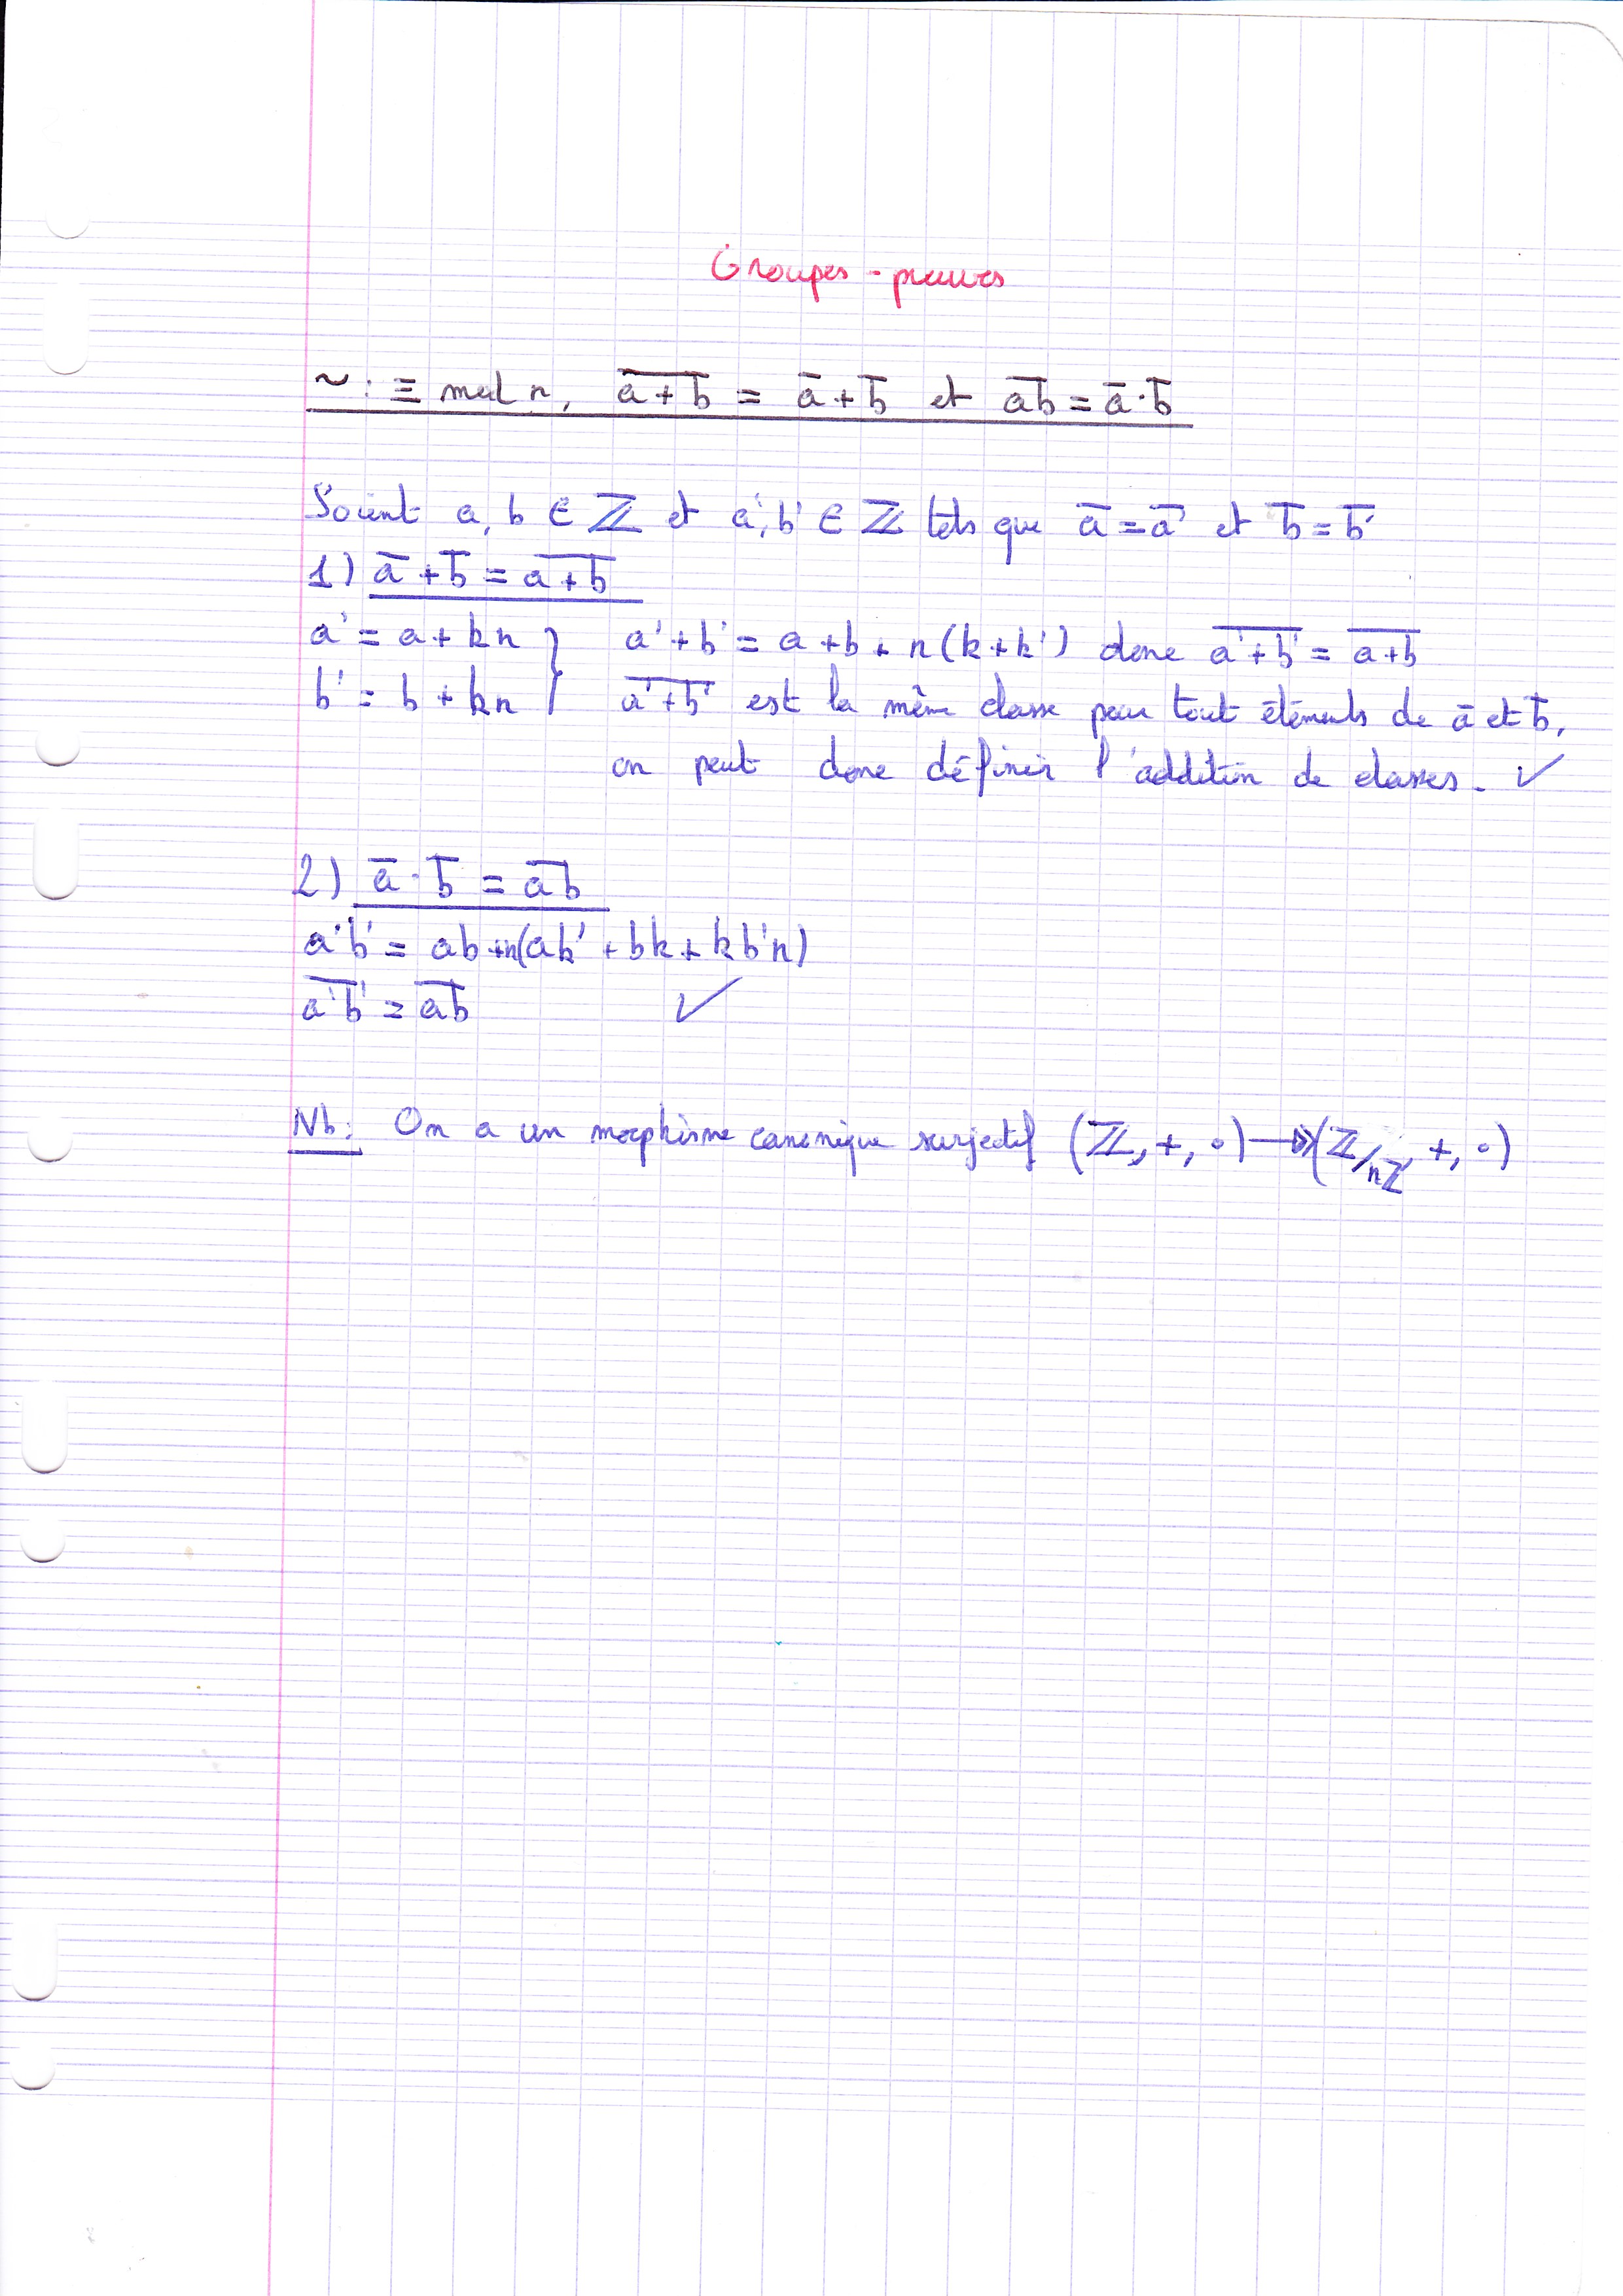 Groupes - preuves
~ : ≡ mod n, \overline{a+b} = \overline{a} + \overline{b} et \overline{ab} = \overline{a}·\overline{b}
Soient a, b ∈ ℤ et a', b' ∈ ℤ tels que \overline{a} = \overline{a'} et \overline{b} = \overline{b'}
1) \overline{a} + \overline{b} = \overline{a+b}
a' = a + kn } a' + b' = a + b + n(k+k') donc \overline{a'+b'} = \overline{a+b}
b' = b + kn } \overline{a'+b'} est la même classe pour tout éléments de \overline{a} et \overline{b},
on peut donc définir l'addition de classes. ✓
2) \overline{a}·\overline{b} = \overline{ab}
a'b' = ab +n(ak' + bk + kb'n)
\overline{a'b'} = \overline{ab} ✓
Nb: On a un morphisme canonique surjectif (ℤ, +, ·) ↠ (ℤ/nℤ, +, ·)